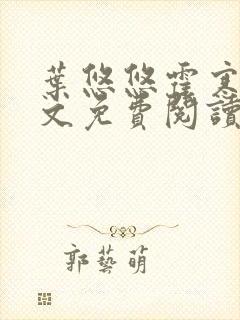 葉悠悠霍寒
文免費閱讀
郭藝萌